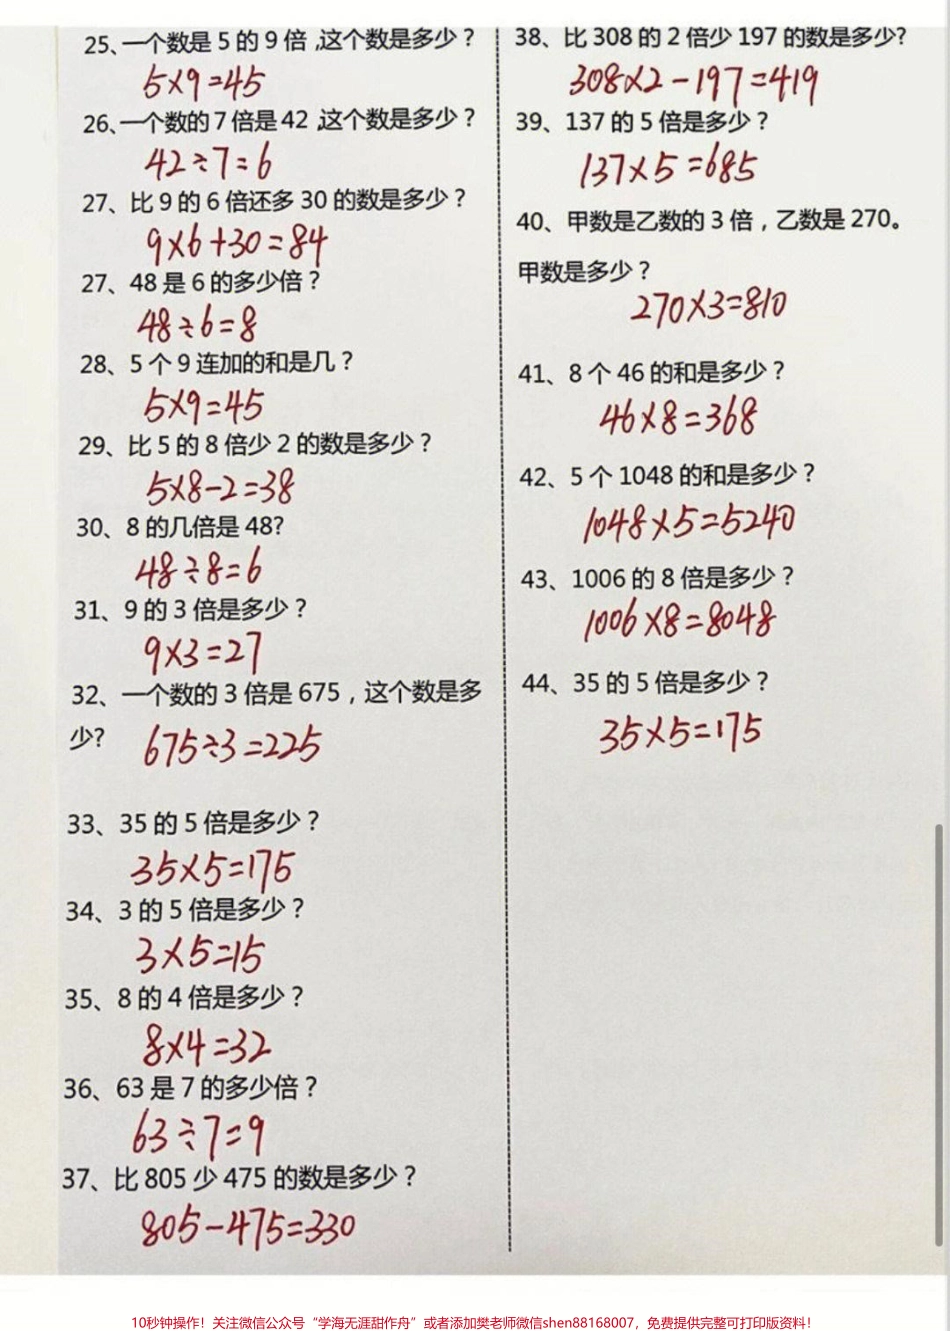 25、一个数是 5 的 9 倍 ,这个数是多少？
5×9=45
26、一个数的 7 倍是 42 ,这个数是多少？
42÷7=6
27、比 9 的 6 倍还多 30 的数是多少？
9×6+30=84
27、48 是 6 的多少倍？
48÷6=8
28、5 个 9 连加的和是几？
5×9=45
29、比 5 的 8 倍少 2 的数是多少？
5×8-2=38
30、8 的几倍是 48?
48÷8=6
31、9 的 3 倍是多少？
9×3=27
32、一个数的 3 倍是 675，这个数是多
少? 675÷3=225
33、35 的 5 倍是多少？
35×5=175
34、3 的 5 倍是多少？
3×5=15
35、8 的 4 倍是多少？
8×4=32
36、63 是 7 的多少倍？
63÷7=9
37、比 805 少 475 的数是多少？
805-475=330
38、比 308 的 2 倍少 197 的数是多少?
308×2-197=419
39、137 的 5 倍是多少？
137×5=685
40、甲数是乙数的 3 倍，乙数是 270。
甲数是多少？
270×3=810
41、8 个 46 的和是多少？
46×8=368
42、5 个 1048 的和是多少？
1048×5=5240
43、1006 的 8 倍是多少？
1006×8=8048
44、35 的 5 倍是多少？
35×5=175
10秒钟操作！关注微信公众号“学海无涯甜作舟”或者添加樊老师微信shen88168007，免费提供完整可打印版资料！